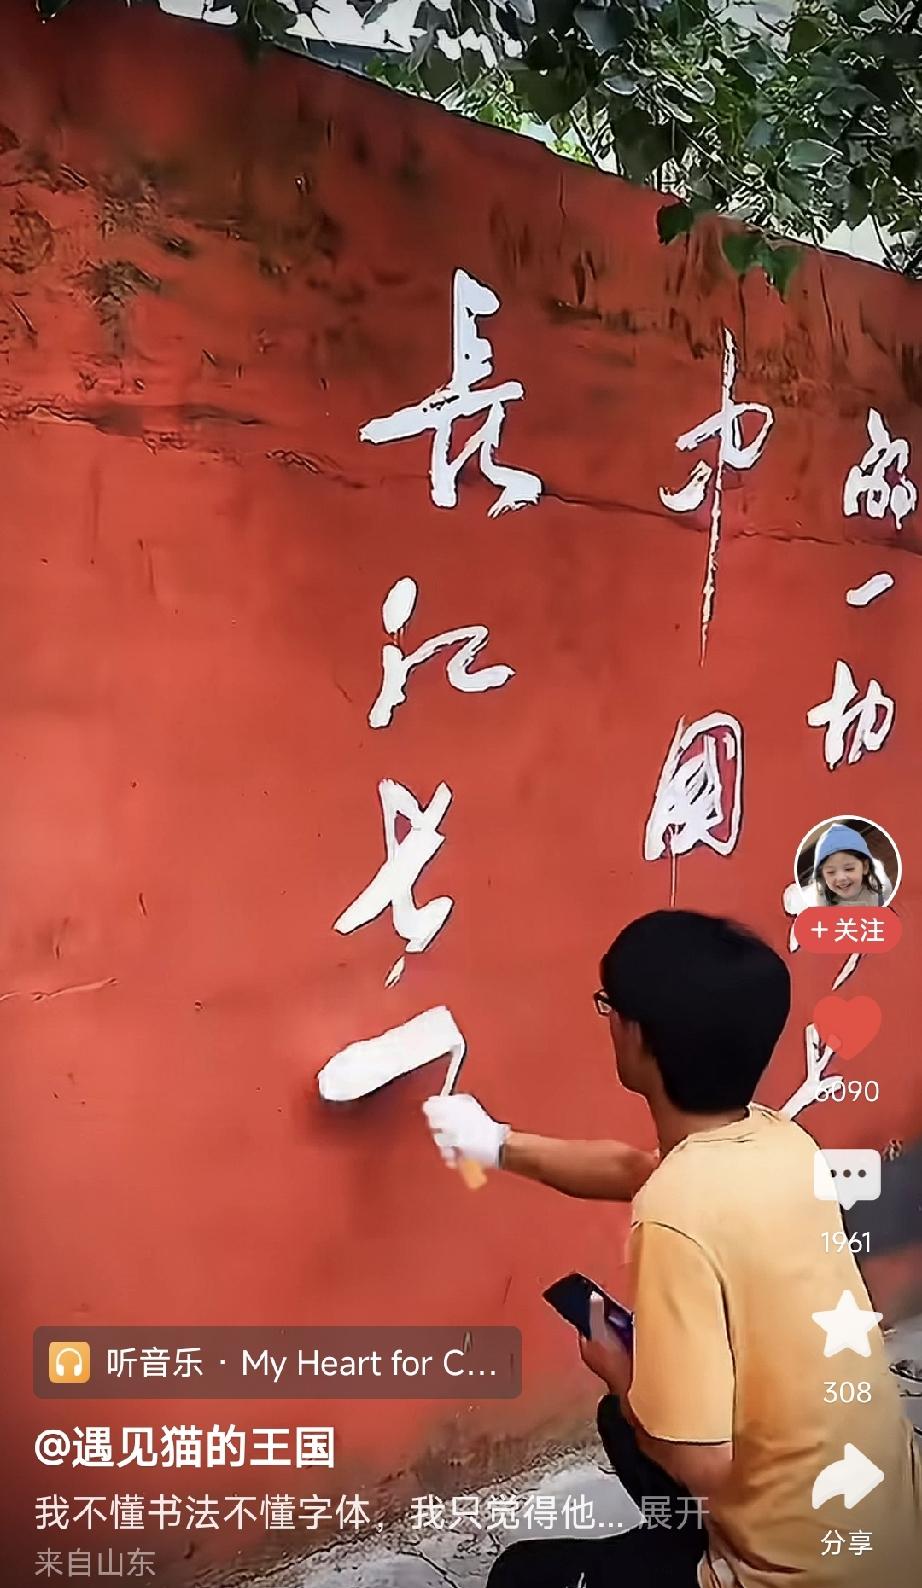 解
一
切
中
國
長
江
长
+ 关注
6090
1961
308
分享
听音乐 · My Heart for C...
@遇见猫的王国
我不懂书法不懂字体，我只觉得他... 展开
来自山东